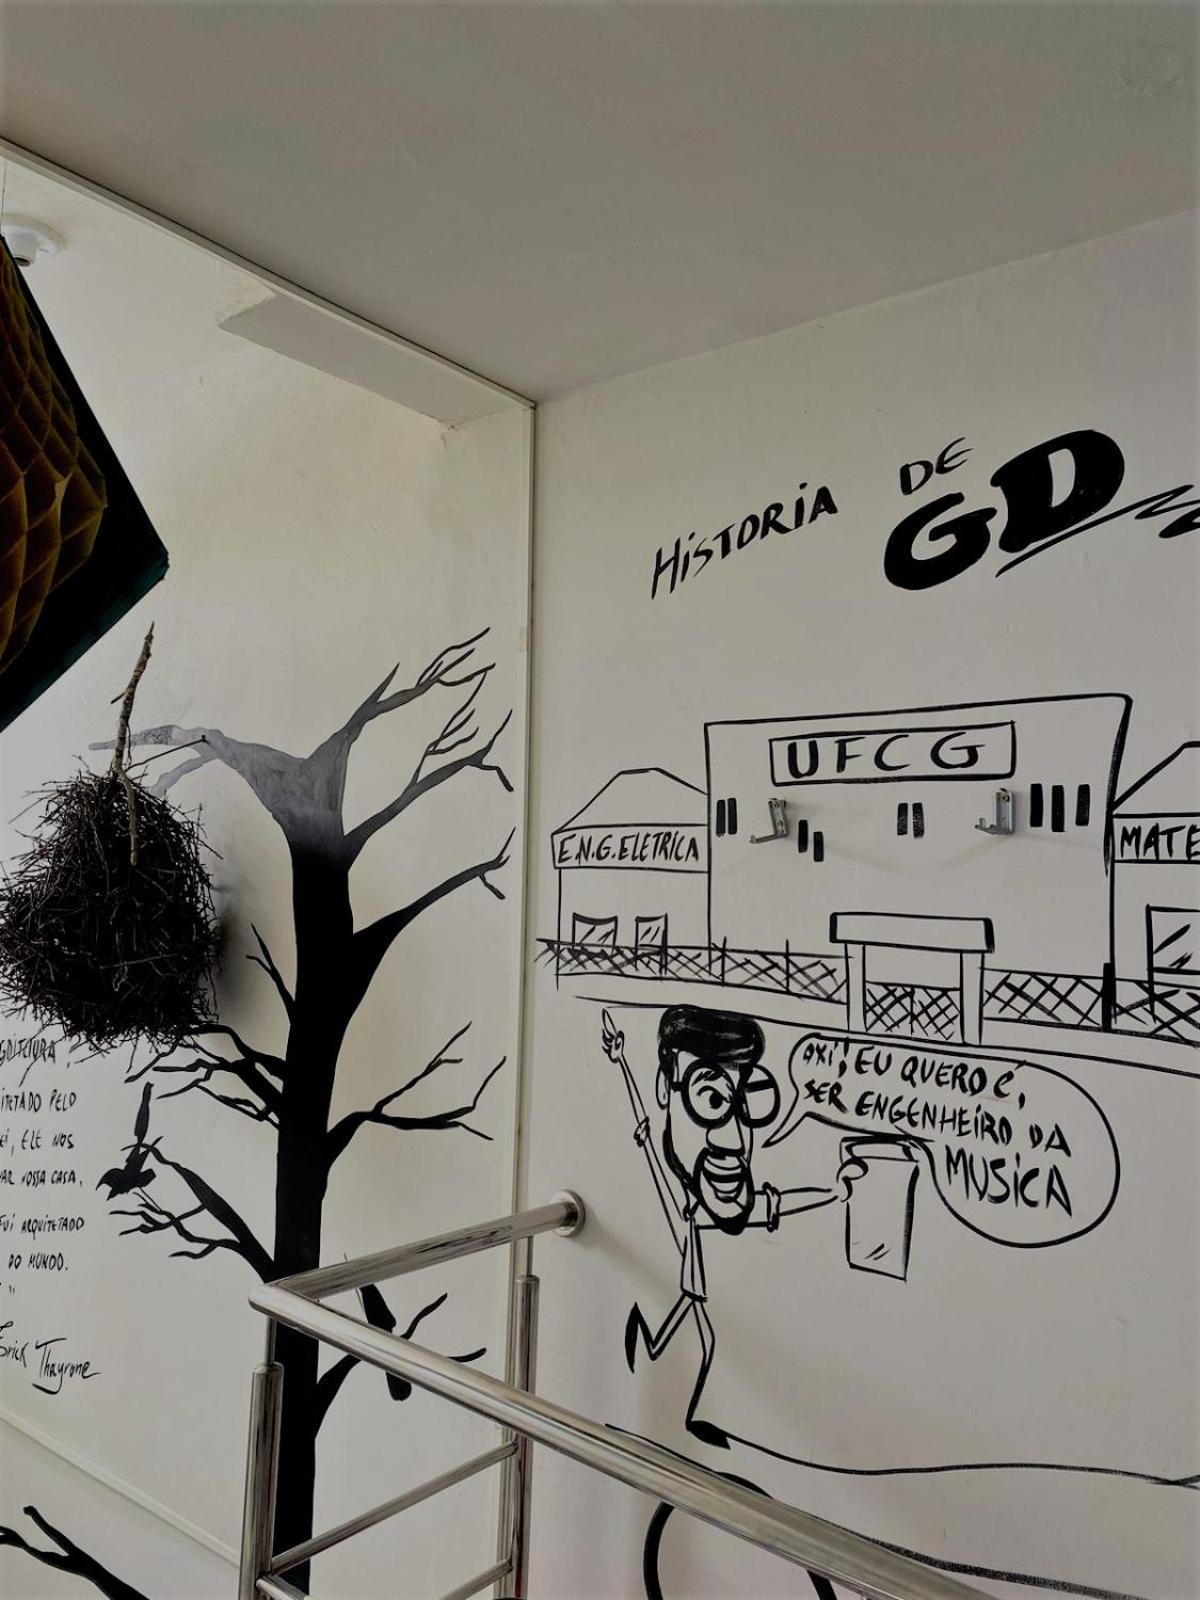 HISTORIA DE
GD
UFCG
E.N.G.ELETRICA
MATE
OXI! EU QUERO É,
SER ENGENHEIRO DA
MUSICA
PELO
ELE NOS
NOSSA CASA,
FUI ARQUITETADO
DO MUNDO.
"
Erick Thayrone